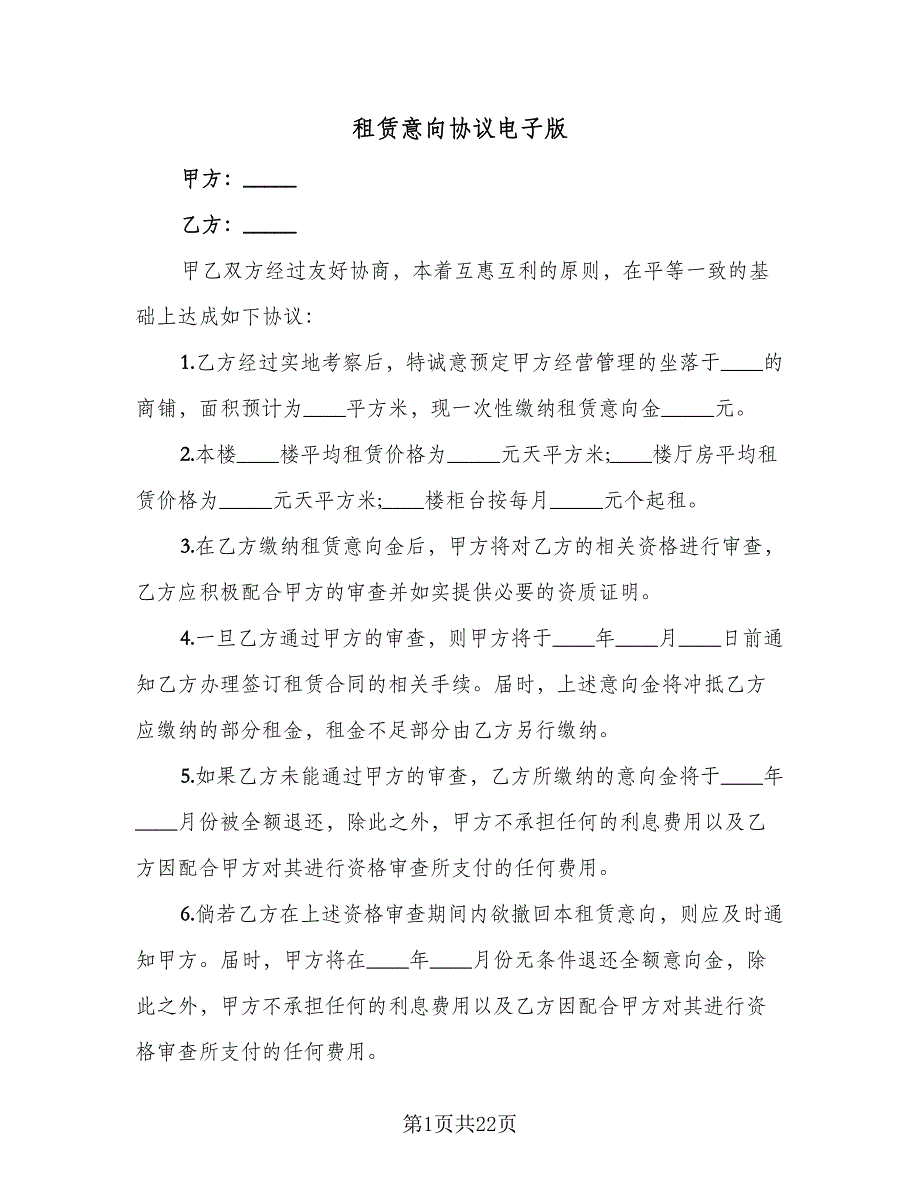 租赁意向协议电子版
甲方：_____
乙方：_____
甲乙双方经过友好协商，本着互惠互利的原则，在平等一致的基
础上达成如下协议：
1.乙方经过实地考察后，特诚意预定甲方经营管理的坐落于____的
商铺，面积预计为____平方米，现一次性缴纳租赁意向金_____元。
2.本楼____楼平均租赁价格为_____元天平方米;____楼厅房平均租
赁价格为_____元天平方米;____楼柜台按每月_____元个起租。
3.在乙方缴纳租赁意向金后，甲方将对乙方的相关资格进行审查，
乙方应积极配合甲方的审查并如实提供必要的资质证明。
4.一旦乙方通过甲方的审查，则甲方将于____年____月____日前通
知乙方办理签订租赁合同的相关手续。届时，上述意向金将冲抵乙方
应缴纳的部分租金，租金不足部分由乙方另行缴纳。
5.如果乙方未能通过甲方的审查，乙方所缴纳的意向金将于____年
____月份被全额退还，除此之外，甲方不承担任何的利息费用以及乙
方因配合甲方对其进行资格审查所支付的任何费用。
6.倘若乙方在上述资格审查期间内欲撤回本租赁意向，则应及时通
知甲方。届时，甲方将在____年____月份无条件退还全额意向金，除
此之外，甲方不承担任何的利息费用以及乙方因配合甲方对其进行资
格审查所支付的任何费用。
第1页共22页